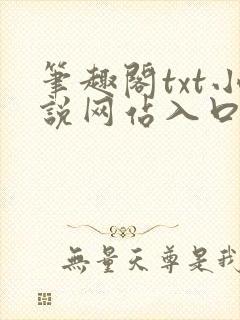 筆趣閣txt小
説网站入口
無量天尊是我